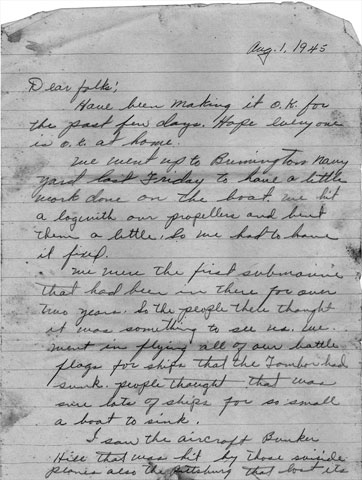 Aug. 1, 1945
Dear folks;
Have been making it O.K. for
the past few days. Hope everyone
is o.k. at home.
We went up to Bremington Navy
yard last Friday to have a little
work done on the boat. We hit
a log with our propellers and bent
them a little, So we had to have
it fixed.
We were the first submarine
that had been in there for over
two years. So the people there thought
it was something to see us. We
went in flying all of our battle
flags for ships that the Tambor had
sunk. people thought that was
sure lots of ships for so small
a boat to sink.
I saw the aircraft Bunker
Hill that was hit by those suicide
planes also the Pittsburg that lost its